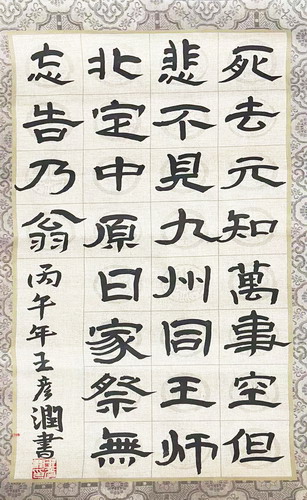 死去元知萬事空但
悲不見九州同王师
北定中原日家祭無
忘告乃翁丙午年王彦潤書